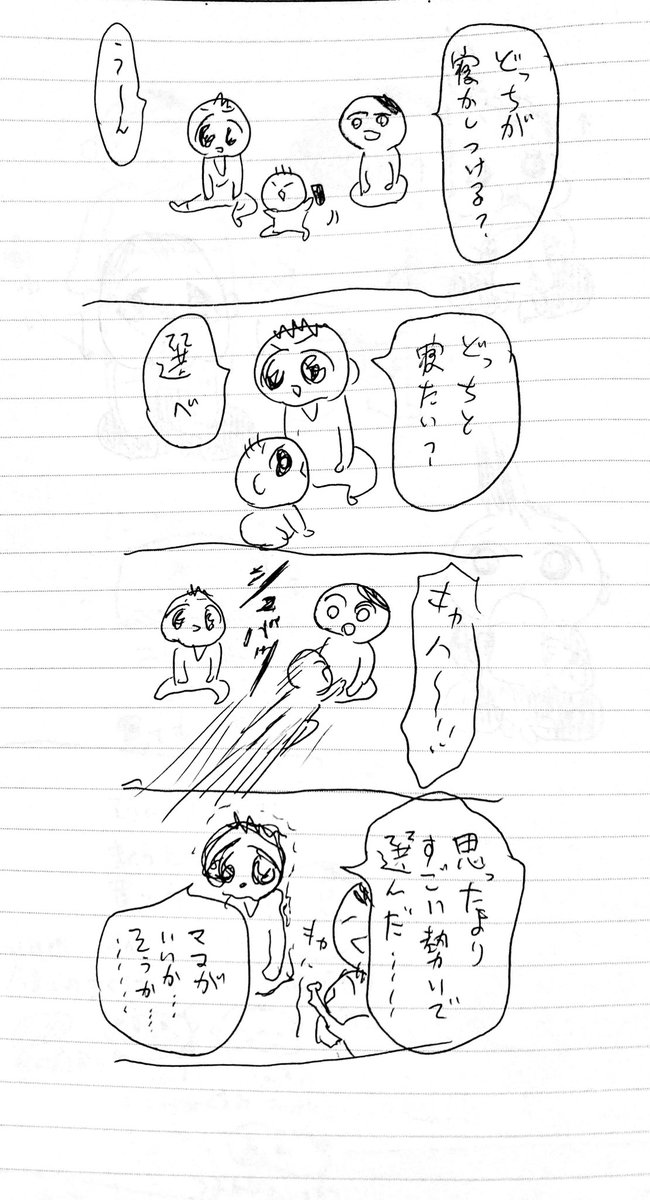 どっちが
寝かしつける?
う〜ん
どっちと
寝たい?
選べ
キャハ〜!!
思ったより
すごい勢いで
選んだ……
キャハ
ママが
いいか…
そうか……